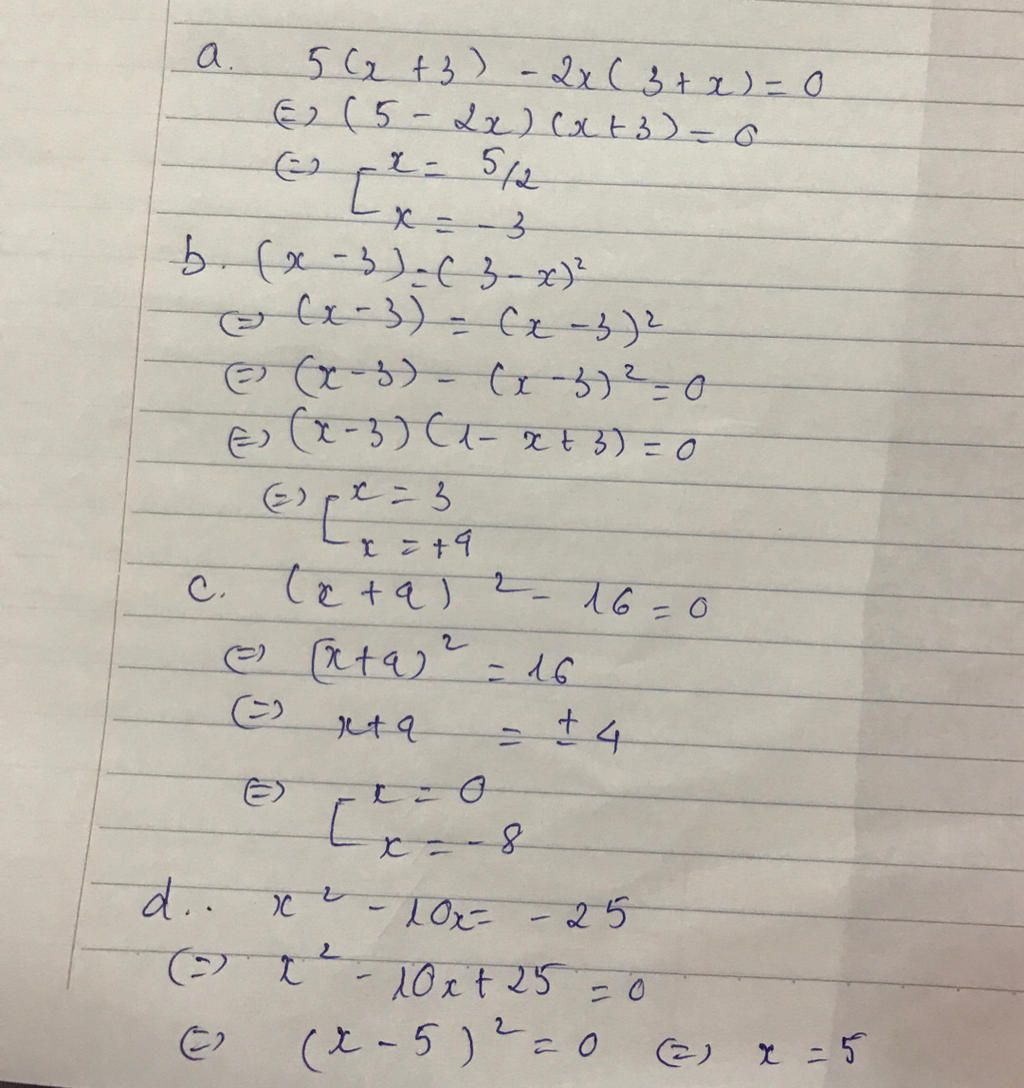 a. 5(x + 3) - 2x(3 + x) = 0
⇔ (5 - 2x)(x + 3) = 0
⇔ [ x = 5/2
x = -3
b. (x - 3) = (3 - x)²
⇔ (x - 3) = (x - 3)²
⇔ (x - 3) - (x - 3)² = 0
⇔ (x - 3)(1 - x + 3) = 0
⇔ [ x = 3
x = +4
c. (x + 4)² - 16 = 0
⇔ (x + 4)² = 16
⇔ x + 4 = ± 4
⇔ [ x = 0
x = -8
d.. x² - 10x = -25
⇔ x² - 10x + 25 = 0
⇔ (x - 5)² = 0 ⇔ x = 5